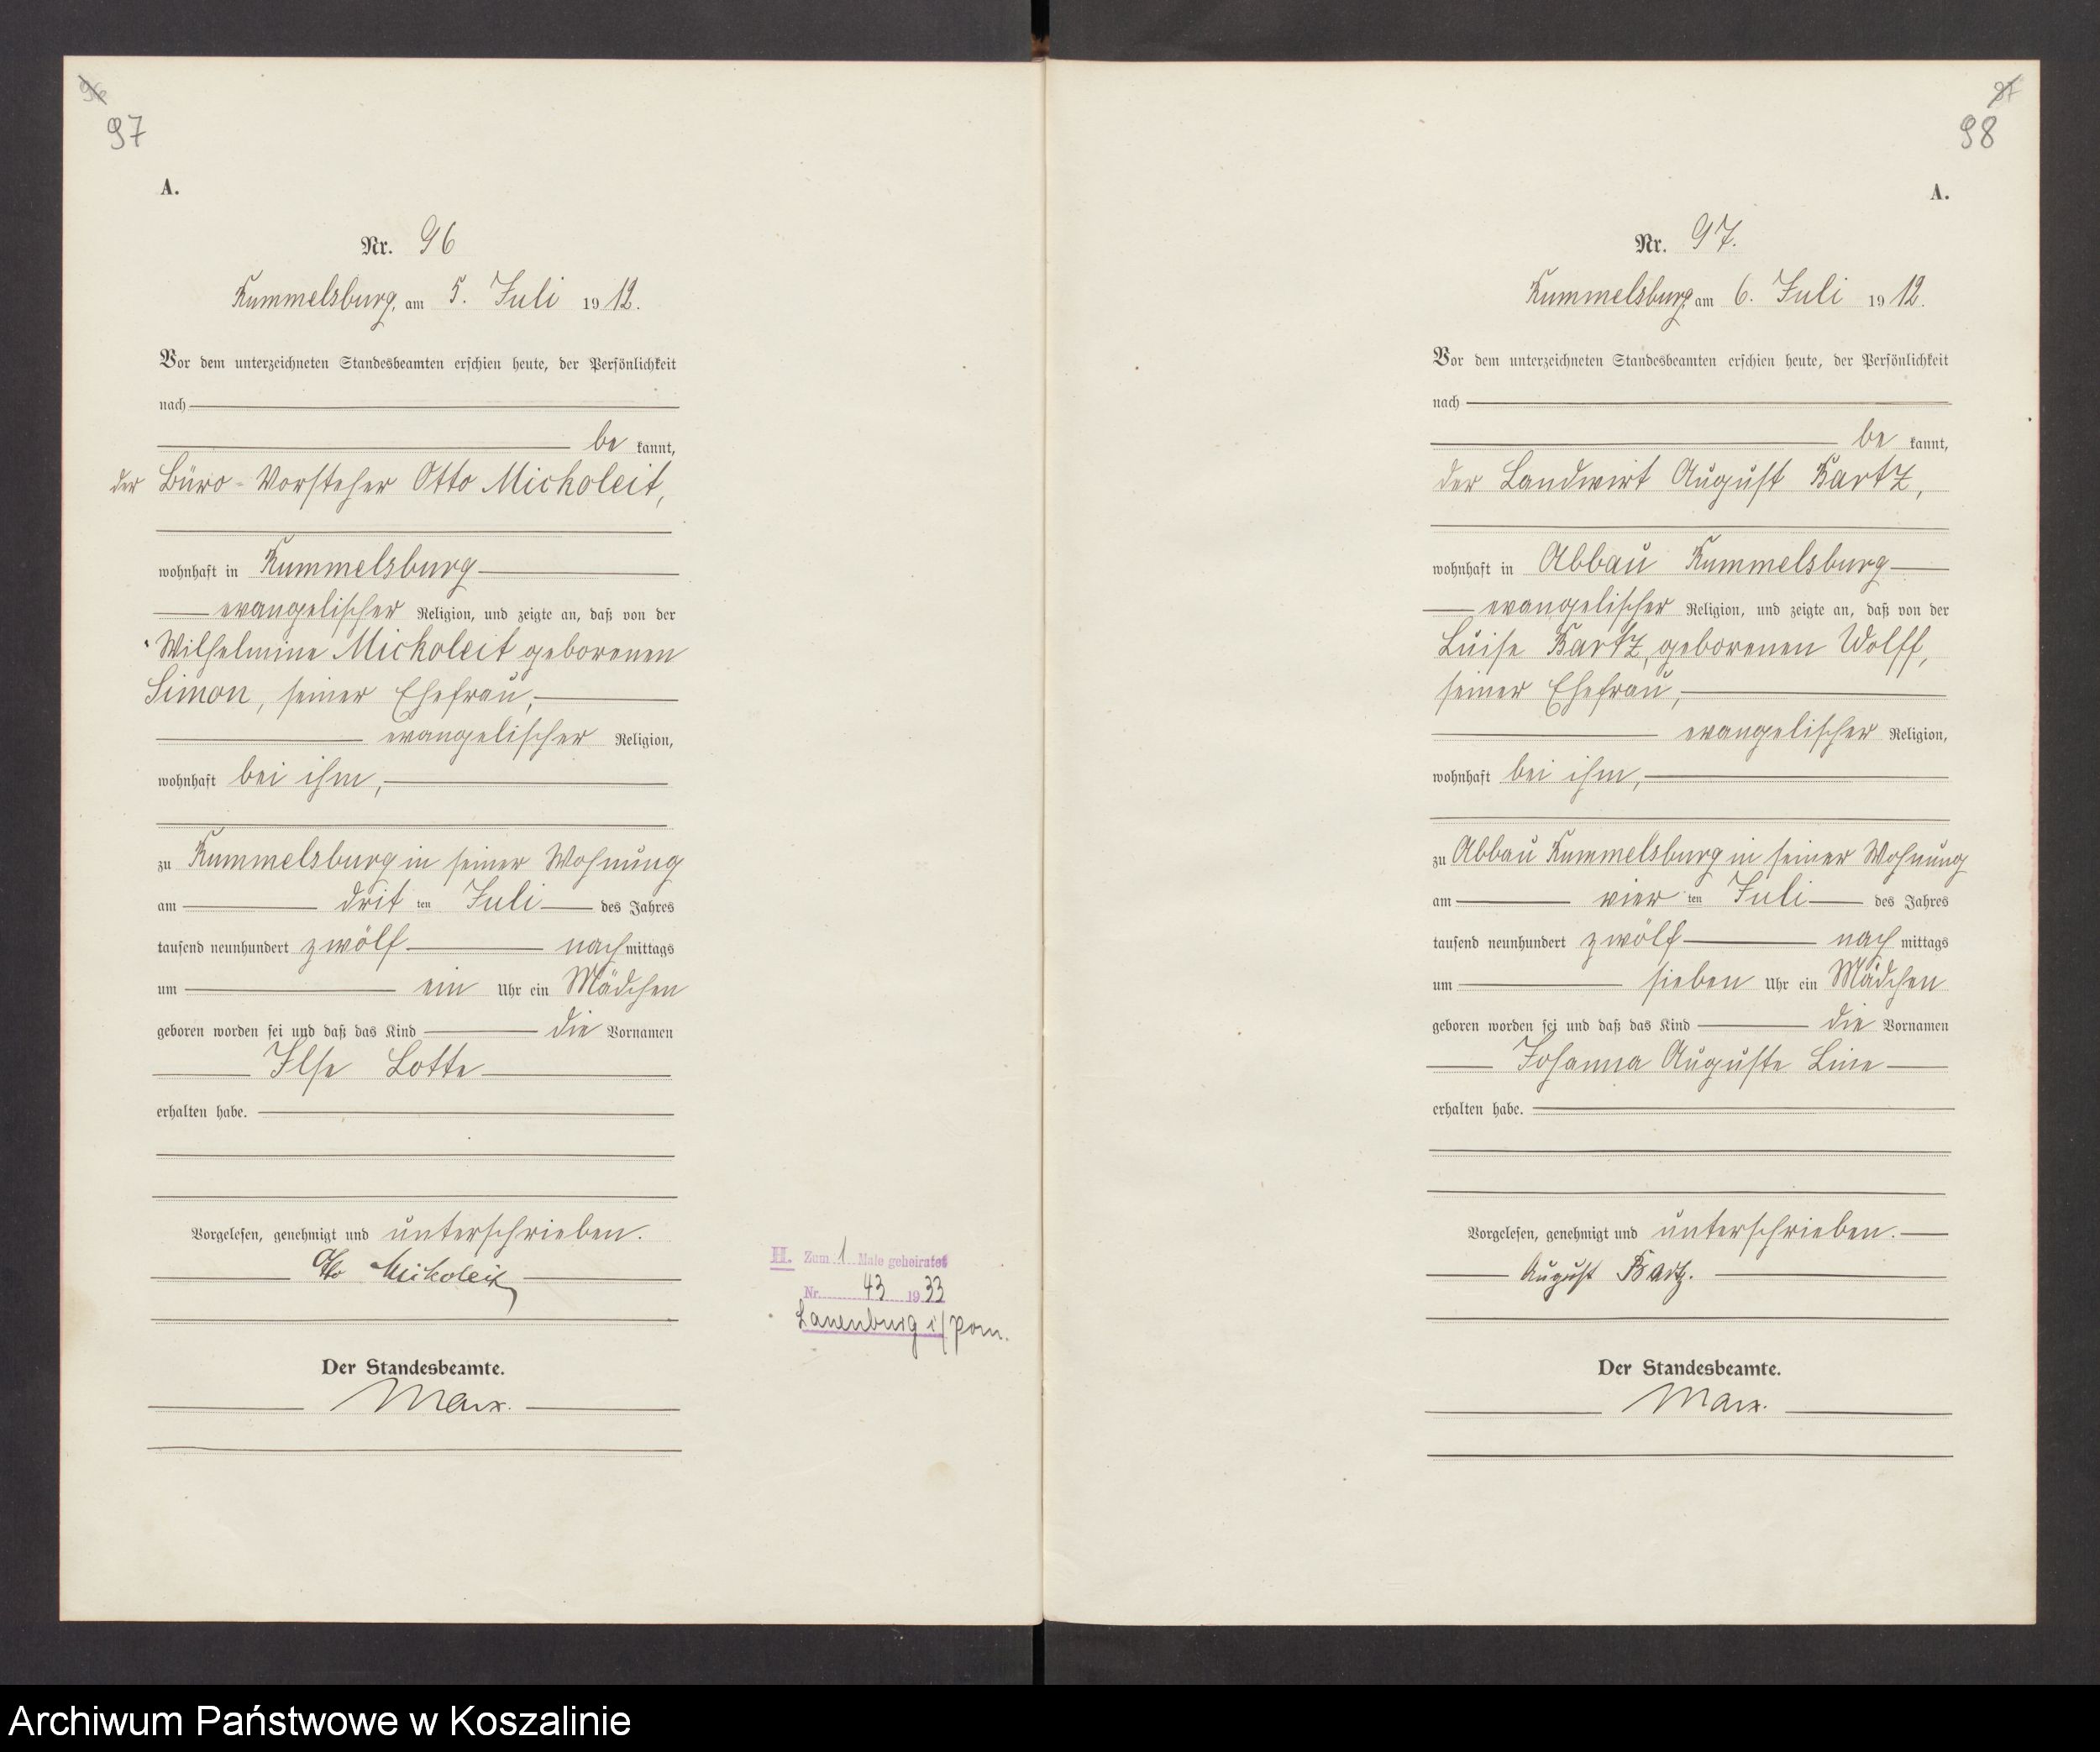 96
97
A.
Nr. 96
Rummelsburg, am 5. Juli 1912.
Vor dem unterzeichneten Standesbeamten erschien heute, der Persönlichkeit
nach
be kannt,
der Büro-Vorsteher Otto Micholeit,
wohnhaft in Rummelsburg
evangelischer Religion, und zeigte an, daß von der
Wilhelmine Micholeit geborenen
Simon, seiner Ehefrau,
evangelischer Religion,
wohnhaft bei ihm,
zu Rummelsburg in seiner Wohnung
am dritten Juli des Jahres
tausend neunhundert zwölf nachmittags
um ein Uhr ein Mädchen
geboren worden sei und daß das Kind die Vornamen
Ilse Lotte
erhalten habe.
Vorgelesen, genehmigt und unterschrieben.
Otto Mikoleit
Der Standesbeamte.
Marx.
H. Zum 1 Male geheiratet
Nr. 43 1933
Lauenburg i/Pom.
97
98
A.
Nr. 97.
Rummelsburg am 6. Juli 1912.
Vor dem unterzeichneten Standesbeamten erschien heute, der Persönlichkeit
nach
be kannt,
der Landwirt August Bartz,
wohnhaft in Abbau Rummelsburg
evangelischer Religion, und zeigte an, daß von der
Luise Bartz, geborenen Wolff,
seiner Ehefrau,
evangelischer Religion,
wohnhaft bei ihm,
zu Abbau Rummelsburg in seiner Wohnung
am vierten Juli des Jahres
tausend neunhundert zwölf nachmittags
um sieben Uhr ein Mädchen
geboren worden sei und daß das Kind die Vornamen
Johanna Auguste Line
erhalten habe.
Vorgelesen, genehmigt und unterschrieben.
August Bartz.
Der Standesbeamte.
Marx.
Archiwum Państwowe w Koszalinie